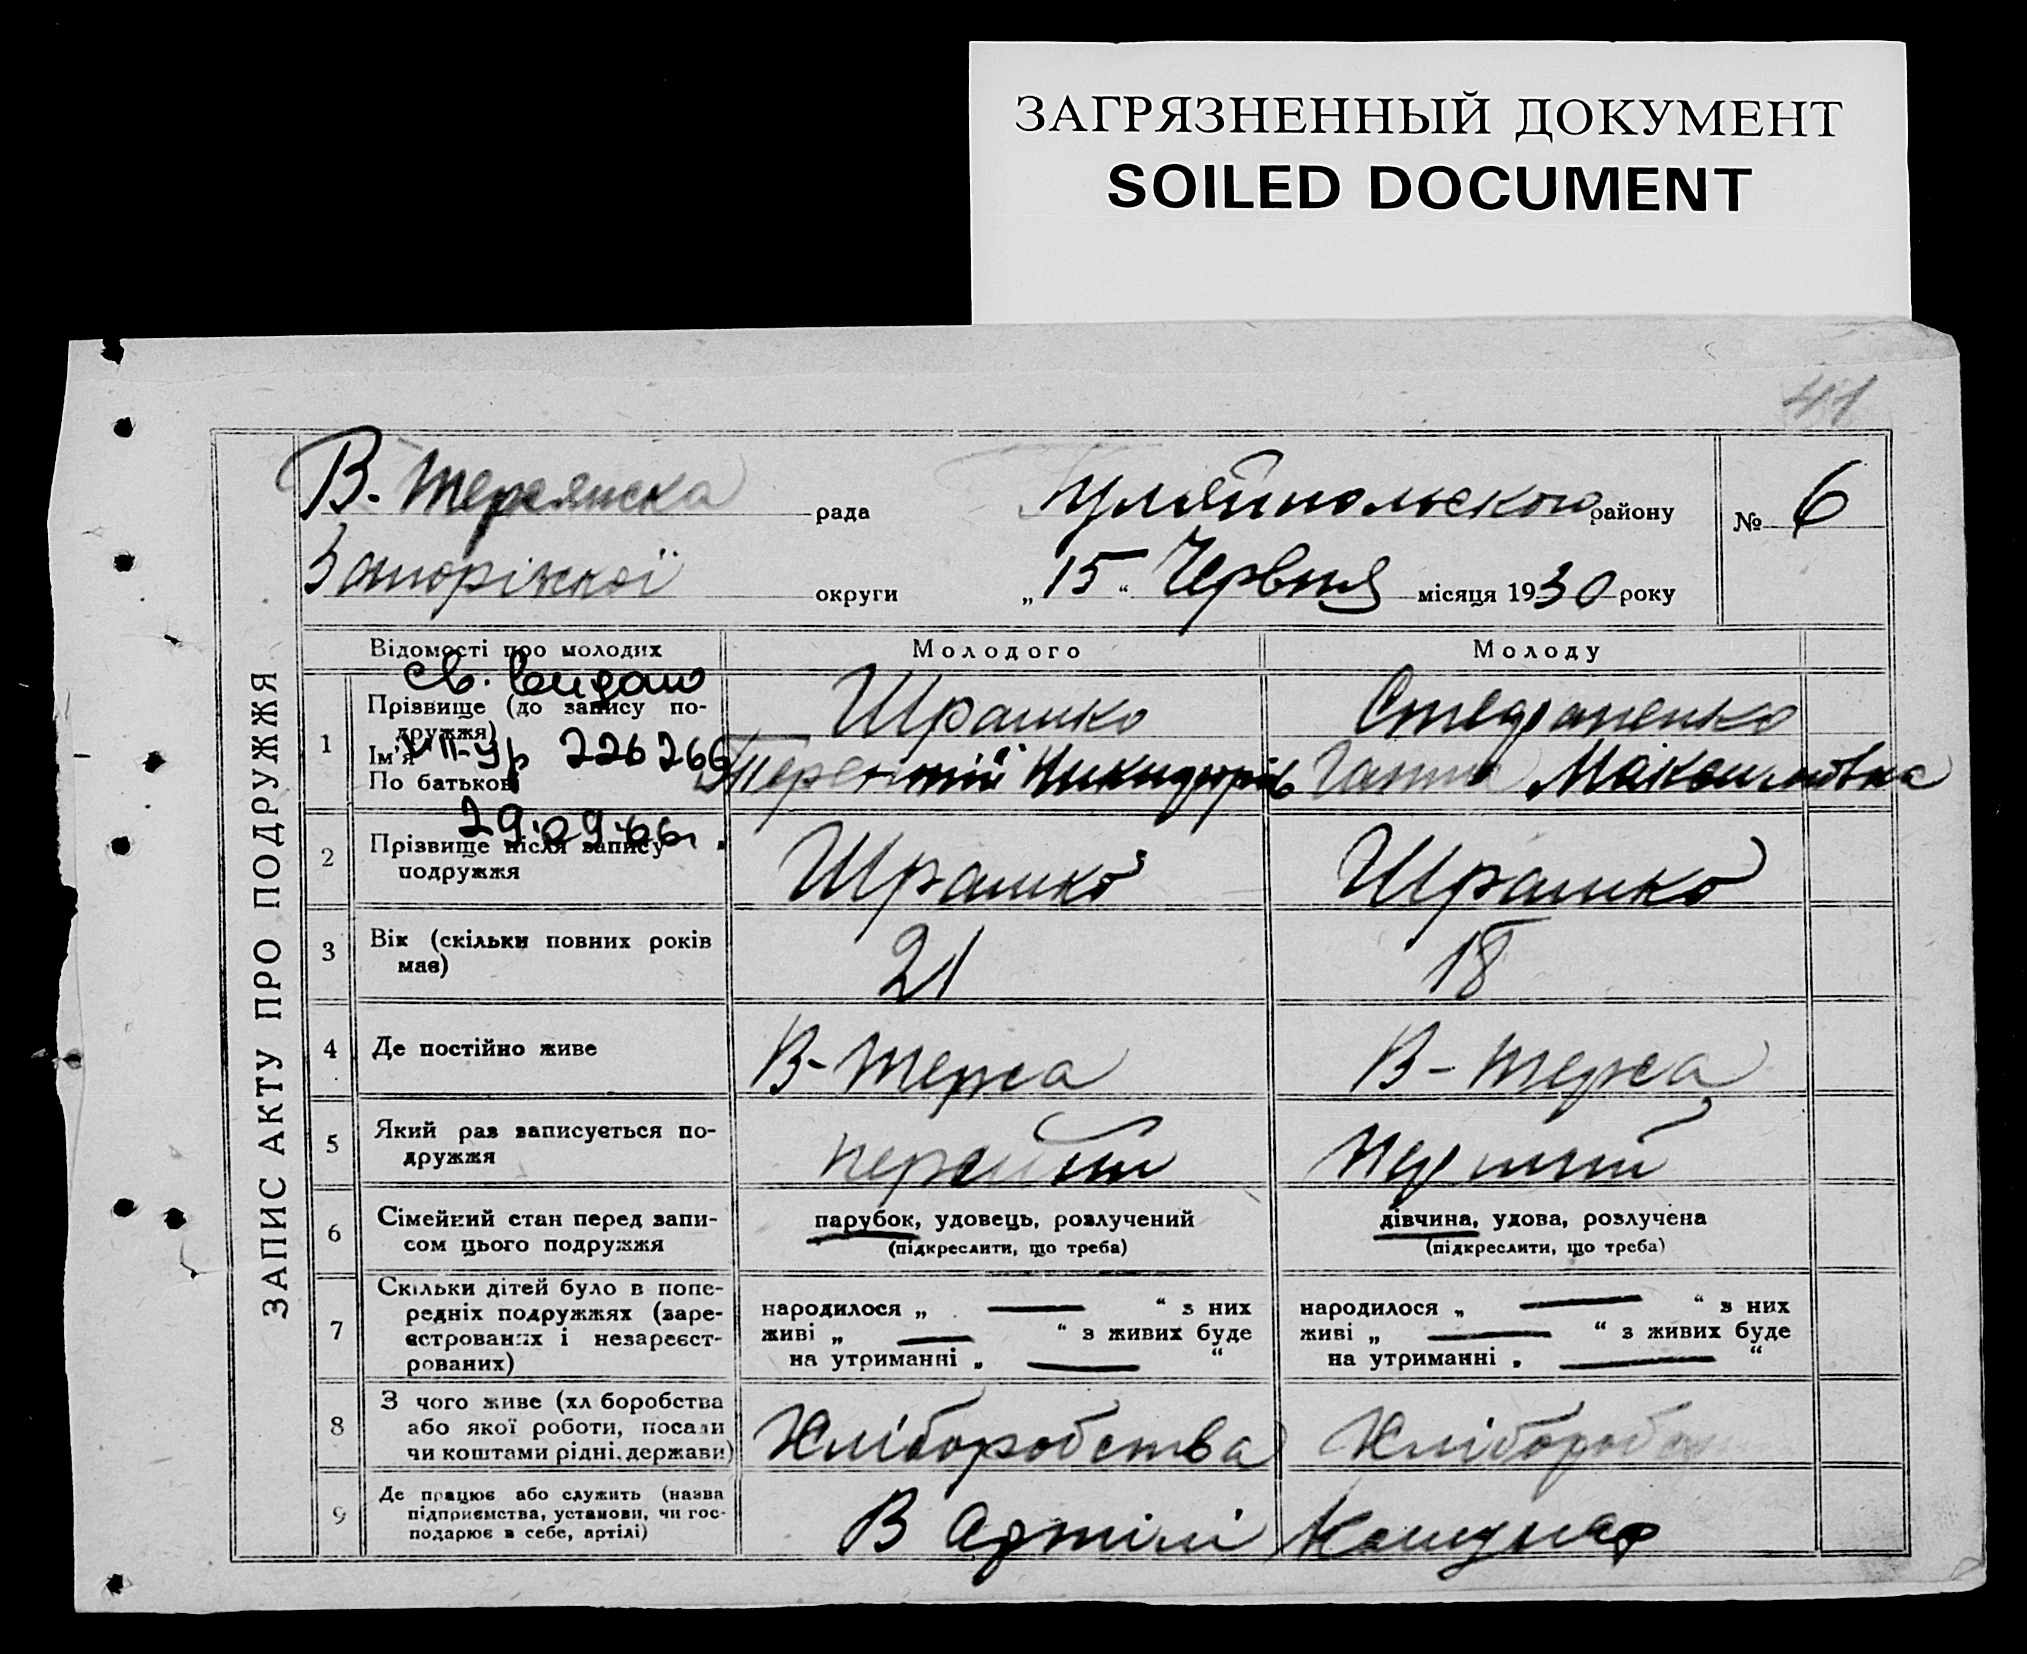 ЗАГРЯЗНЕННЫЙ ДОКУМЕНТ
SOILED DOCUMENT
41
ЗАПИС АКТУ ПРО ПОДРУЖЖЯ
В. Терсянска рада Гуляйпольського району № 6
Запоріжкої округи „15“ Червня місяця 1930 року
Відомості про молодих Молодого Молоду
Св. видано
1 Прізвище (до запису подружжя) Шрамко Стефаненко
Ім'я
По батькові
Терентий Никифорів Ганна Максимівна
УП-УР 226266
29.09.66г.
2 Прізвище після запису подружжя Шрамко Шрамко
3 Вік (скільки повних років має) 21 18
4 Де постійно живе В-Терса В-Терса
5 Який раз записується подружжя первий первий
6 Сімейний стан перед записом цього подружжя парубок, удовець, розлучений дівчина, удова, розлучена
(підкреслити, що треба) (підкреслити, що треба)
7 Скільки дітей було в попередніх подружжях (зареєстрованих і незареєстрованих)
народилося „ — “ з них народилося „ — “ з них
живі „ — “ з живих буде живі „ — “ з живих буде
на утриманні „ — “ на утриманні „ — “
8 З чого живе (хліборобства або якої роботи, посади чи коштами рідні, держави) Хліборобства Хлібороб
9 Де працює або служить (назва підприємства, установи, чи господарює в себе, артілі) В Артілі Комунар